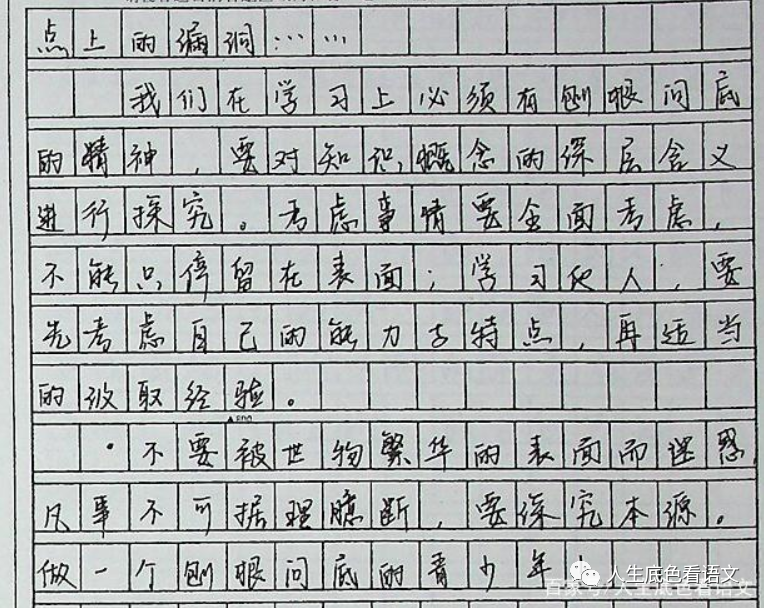 点上的漏洞……
我们在学习上必须有刨根问底
的精神，要对知识，概念的深层含义
进行探究。考虑事情要全面考虑，
不能只停留在表面；学习他人，要
先考虑自己的能力与特点，再适当
的汲取经验。
▲800
·不要被世物繁华的表面而迷惑，
凡事不可据理臆断，要深究本源。
做一个刨根问底的青少年！
人生底色看语文
百家号/人生底色看语文